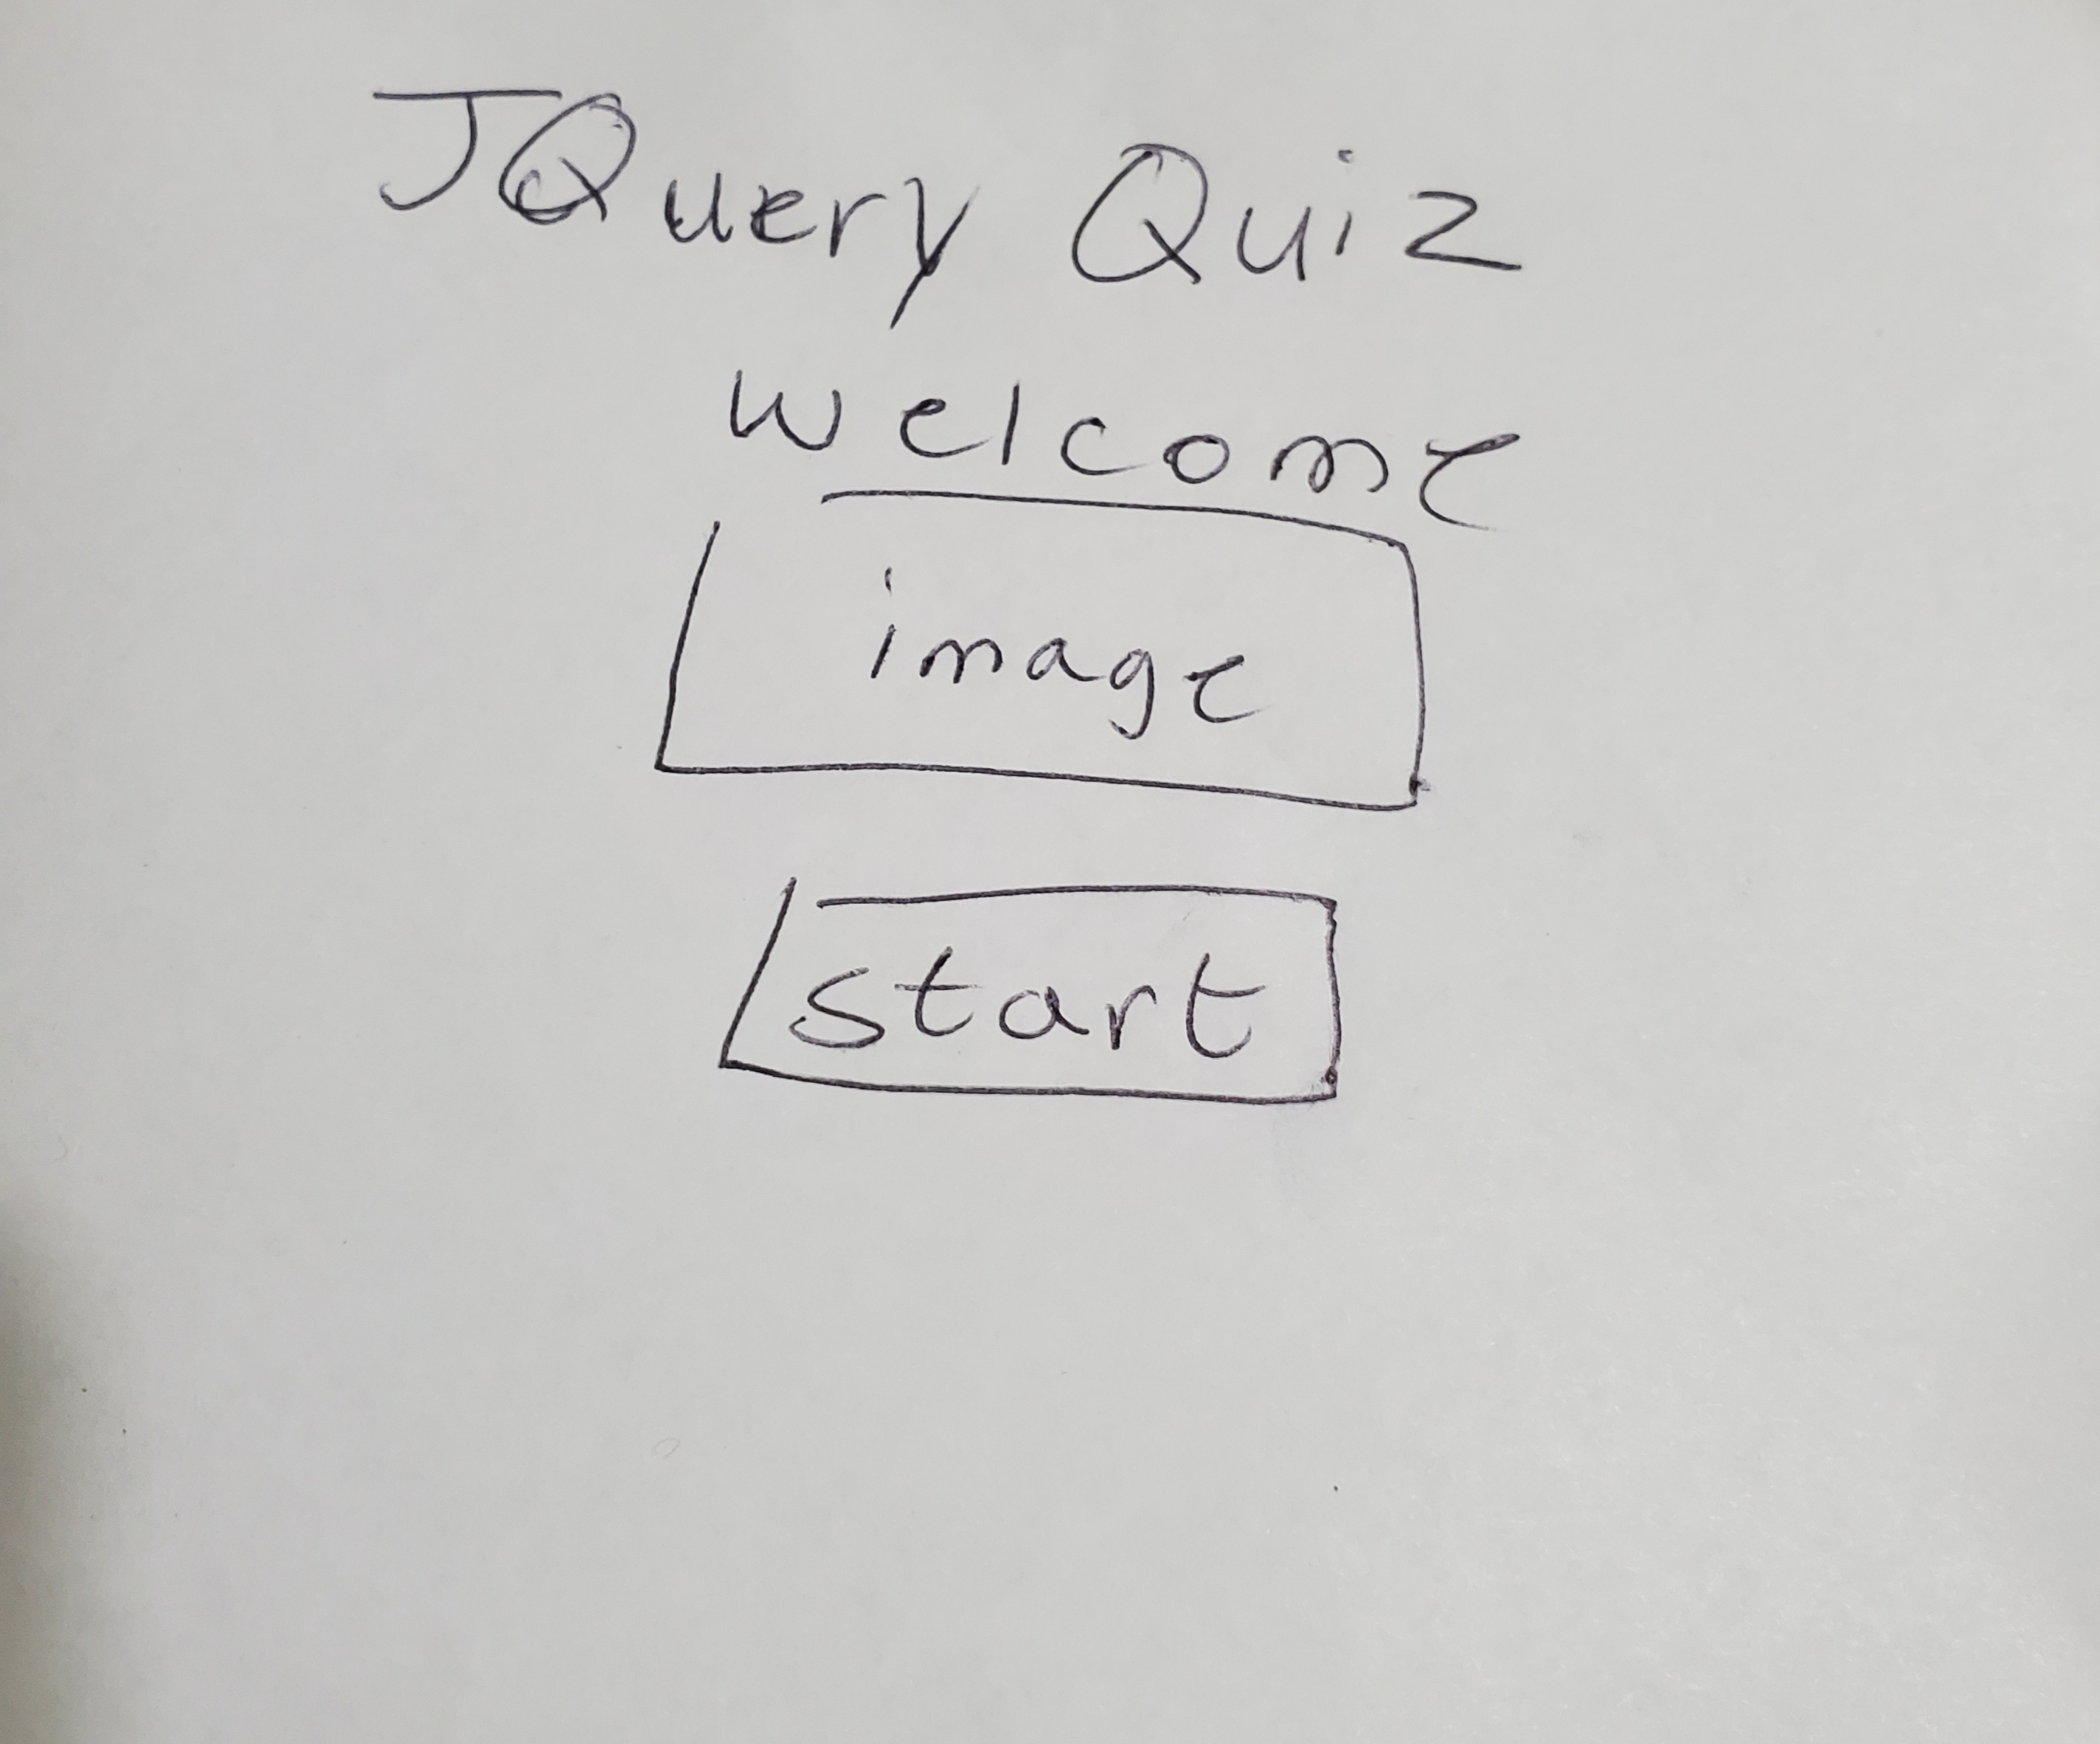 JQuery Quiz
welcome
image
start